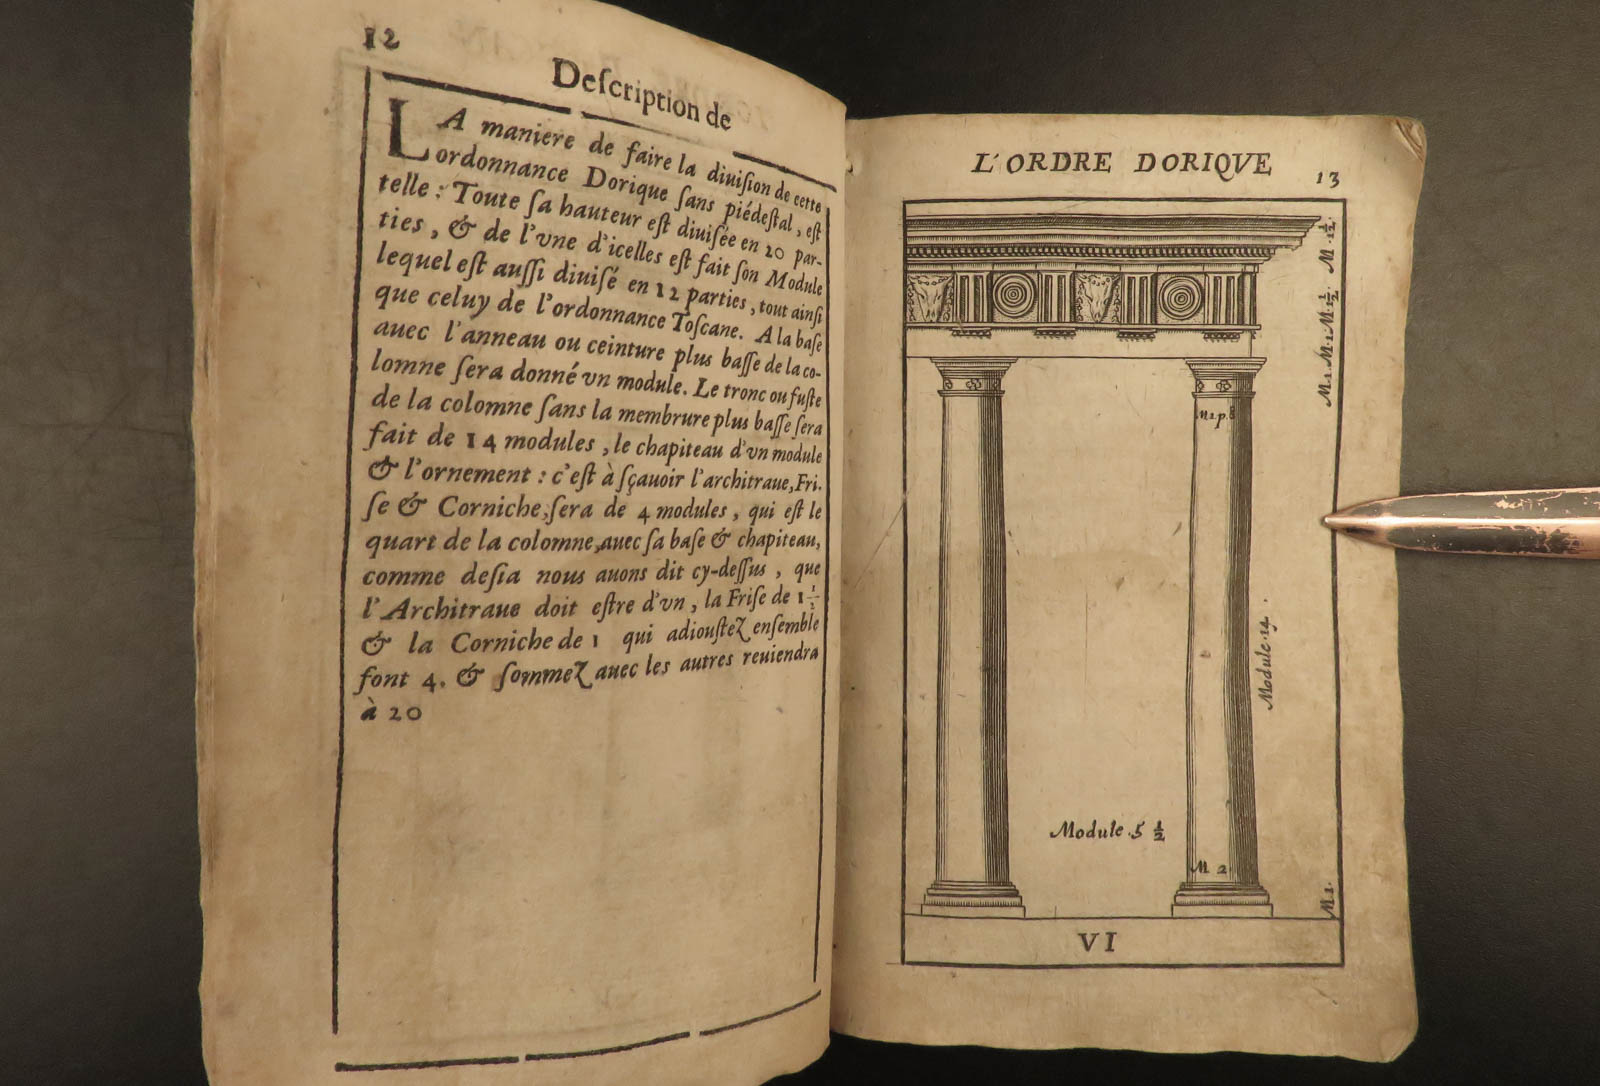 12
Deſcription de
LA maniere de faire la diuiſion de cette
ordonnance Dorique ſans piédeſtal, eſt
telle : Toute ſa hauteur eſt diuiſée en 20 par-
ties, & de l'vne d'icelles eſt fait ſon Module
lequel eſt auſſi diuiſé en 12 parties, tout ainſi
que celuy de l'ordonnance Toſcane. A la baſe
auec l'anneau ou ceinture plus baſſe de la co-
lomne ſera donné vn module. Le tronc ou fuſte
de la colomne ſans la membrure plus baſſe ſera
fait de 14 modules, le chapiteau d'vn module
& l'ornement : c'eſt à ſçauoir l'architraue, Fri-
ſe & Corniche, ſera de 4 modules, qui eſt le
quart de la colomne, auec ſa baſe & chapiteau,
comme deſia nous auons dit cy-deſſus, que
l'Architraue doit eſtre d'vn, la Friſe de 1 ½
& la Corniche de 1 qui adiouſtez enſemble
font 4. & ſommez auec les autres reuiendra
à 20
L'ORDRE DORIQVE
13
M 1½.
M. 1. M. 1. M 1½.
M 1 p. 8
Module. 14.
Module. 5 ½
M 2
M 1.
VI